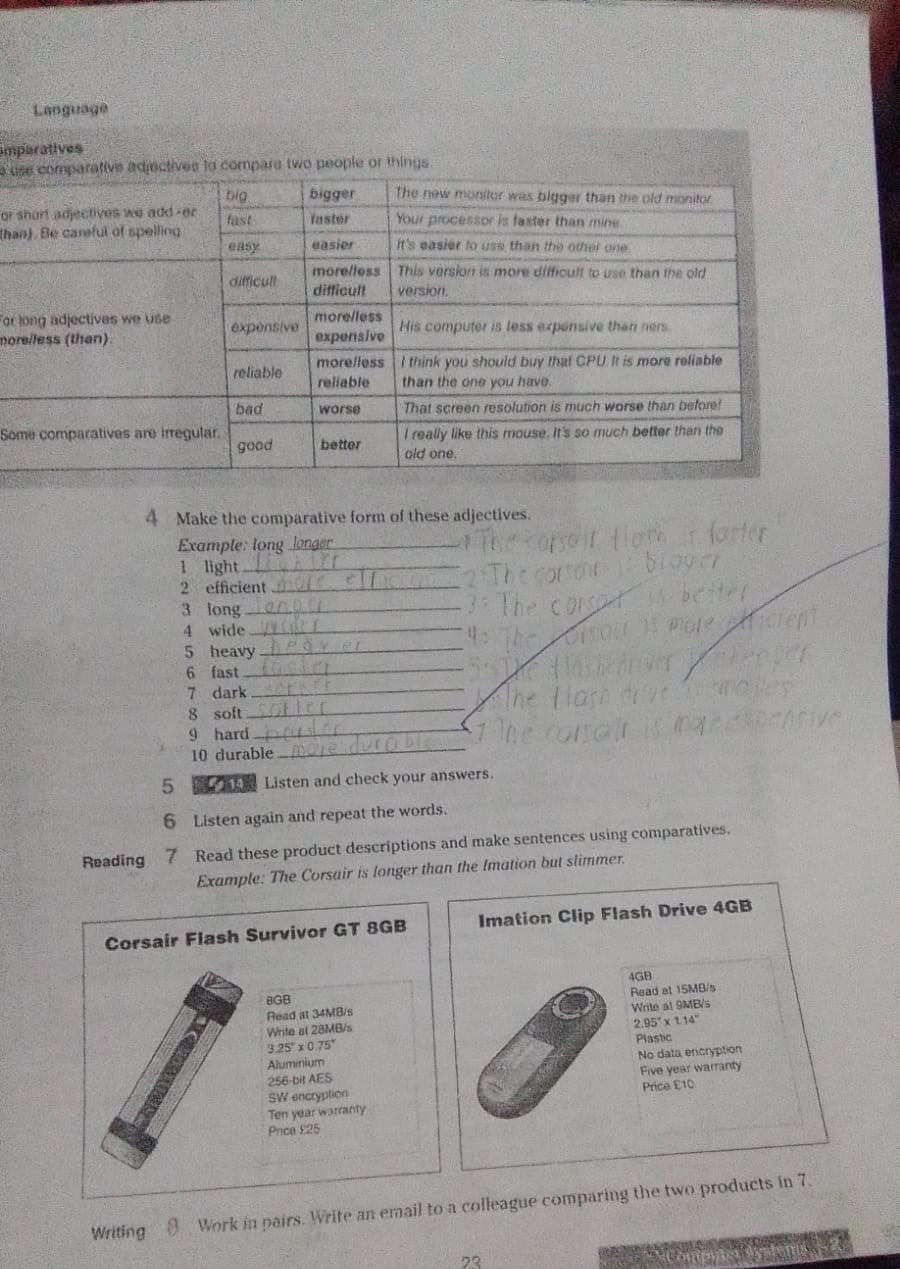 Language
omparatives
use comparative adjectives to compare two people or things.
or short adjectives we add -er
than). Be careful of spelling
big bigger The new monitor was bigger than the old monitor.
fast faster Your processor is faster than mine.
easy easier It's easier to use than the other one.
For long adjectives we use
more/less (than).
difficult more/less difficult This version is more difficult to use than the old version.
expensive more/less expensive His computer is less expensive than hers.
reliable more/less reliable I think you should buy that CPU. It is more reliable than the one you have.
Some comparatives are irregular.
bad worse That screen resolution is much worse than before!
good better I really like this mouse. It's so much better than the old one.
4 Make the comparative form of these adjectives.
Example: long longer
1 light lighter
2 efficient more efficien
3 long longer
4 wide wider
5 heavy heavier
6 fast faster
7 dark
8 soft softer
9 hard harder
10 durable more durable
1 The corsair flash is faster
2: The corsair is bigger
3: The corsair is better
4: The corsair is more efficient
5: The flash driver
6: The flash drive is smaller
7 The corsair is more expensive
5 14 Listen and check your answers.
6 Listen again and repeat the words.
Reading 7 Read these product descriptions and make sentences using comparatives.
Example: The Corsair is longer than the Imation but slimmer.
Corsair Flash Survivor GT 8GB
8GB
Read at 34MB/s
Write at 28MB/s
3.25" x 0.75"
Aluminium
256-bit AES
SW encryption
Ten year warranty
Price £25
Imation Clip Flash Drive 4GB
4GB
Read at 15MB/s
Write at 9MB/s
2.95" x 1.14"
Plastic
No data encryption
Five year warranty
Price £10
Writing 8 Work in pairs. Write an email to a colleague comparing the two products in 7.
23
Computer Systems 2